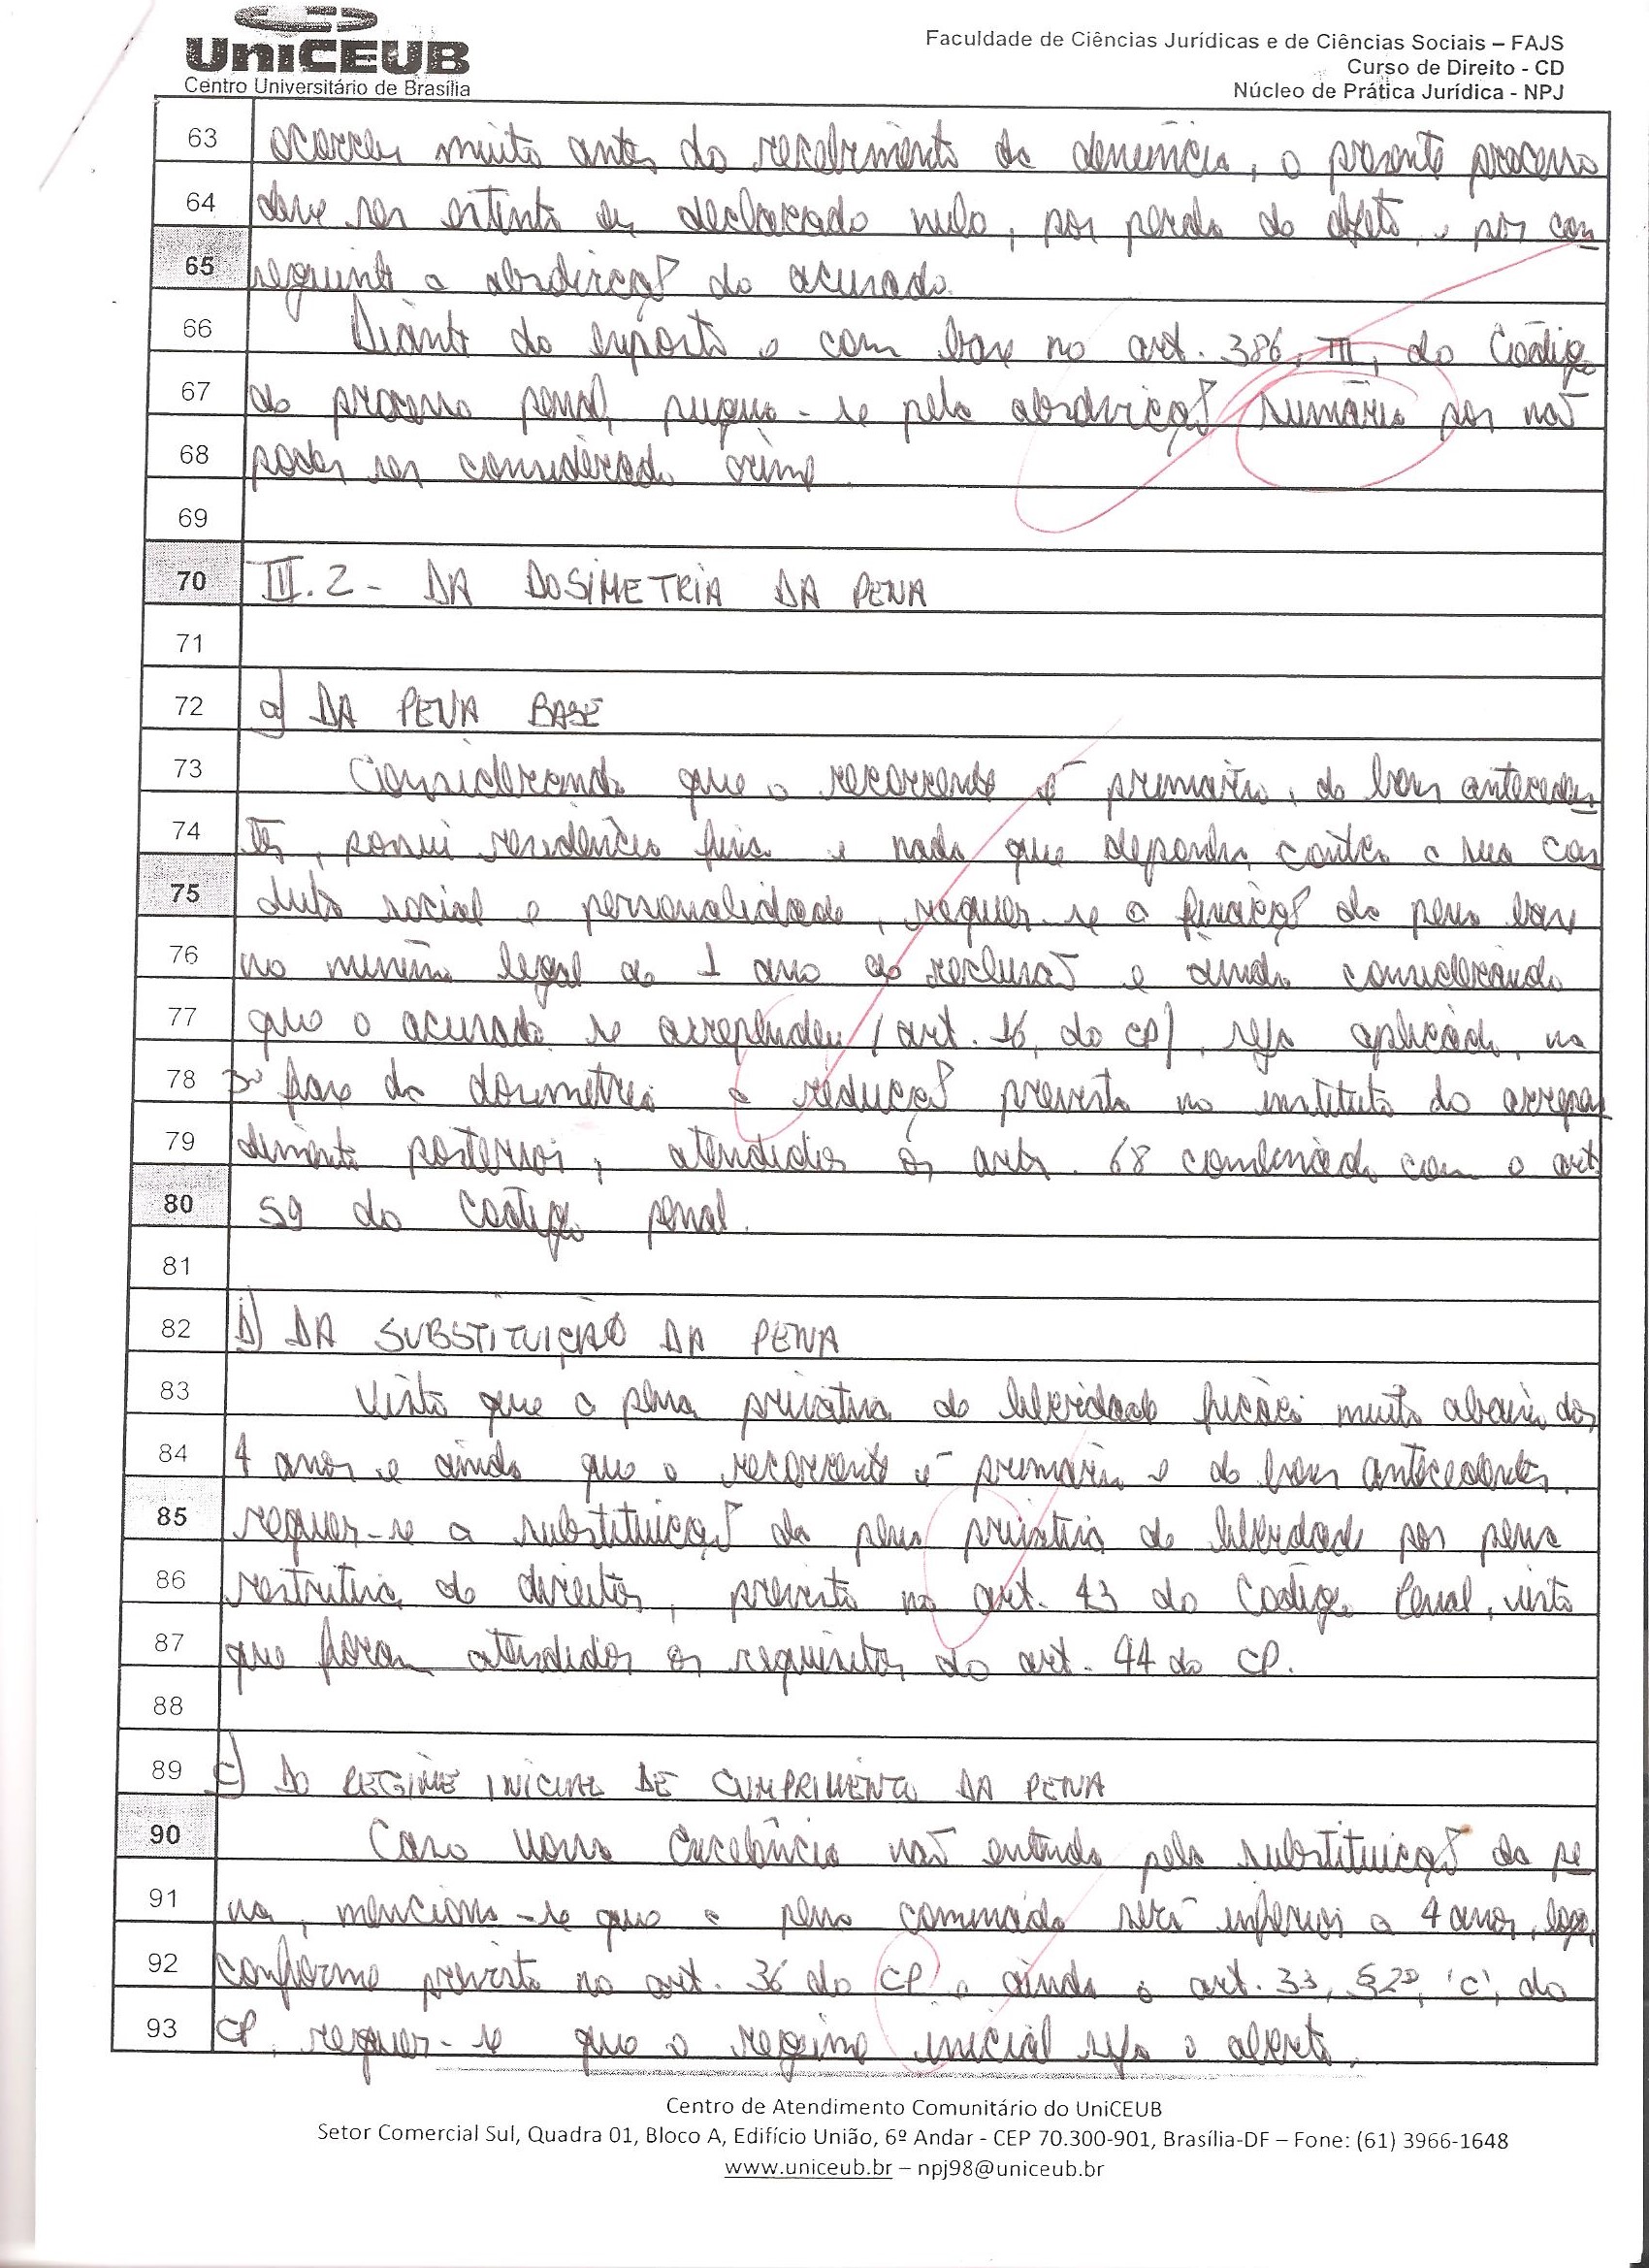 UniCEUB
Centro Universitário de Brasília
Faculdade de Ciências Jurídicas e de Ciências Sociais – FAJS
Curso de Direito - CD
Núcleo de Prática Jurídica - NPJ
63 ocorreu muito antes do recebimento da denúncia, o presente processo
64 deve ser extinto e declarado nulo, por perda do objeto, e por con
65 seguinte a absolvição do acusado.
66 Diante do exposto e com base no art. 386, III, do Código
67 de processo penal, pugna-se pela absolvição sumária por não
68 poder ser considerado crime.
69
70 III.2 - DA DOSIMETRIA DA PENA
71
72 a) DA PENA BASE
73 Considerando que o recorrente é primário, de bons anteceden
74 tes, possui residência fixa e nada que deponha contra a sua con
75 duta social e personalidade, requer-se a fixação da pena base
76 no mínimo legal de 1 ano de reclusão e ainda considerando
77 que o acusado se arrependeu (art. 16, do CP), seja aplicada, na
78 3ª fase da dosimetria a redução prevista no instituto do arrepen
79 dimento posterior, atendidos os arts. 68 combinado com o art.
80 59 do Código penal.
81
82 b) DA SUBSTITUIÇÃO DA PENA
83 Visto que a pena privativa de liberdade ficará muito abaixo dos
84 4 anos e ainda que o recorrente é primário e de bons antecedentes,
85 requer-se a substituição da pena privativa de liberdade por pena
86 restritiva de direitos, prevista no art. 43 do Código Penal, visto
87 que foram atendidos os requisitos do art. 44 do CP.
88
89 c) DO REGIME INICIAL DE CUMPRIMENTO DA PENA
90 Caso Vossa Excelência não entenda pela substituição da pe
91 na, menciona-se que a pena cominada será inferior a 4 anos, logo,
92 conforme previsto no art. 36 do CP e ainda o art. 33, §2º, 'c', do
93 CP, requer-se que o regime inicial seja o aberto.
Centro de Atendimento Comunitário do UniCEUB
Setor Comercial Sul, Quadra 01, Bloco A, Edifício União, 6º Andar - CEP 70.300-901, Brasília-DF – Fone: (61) 3966-1648
www.uniceub.br – npj98@uniceub.br